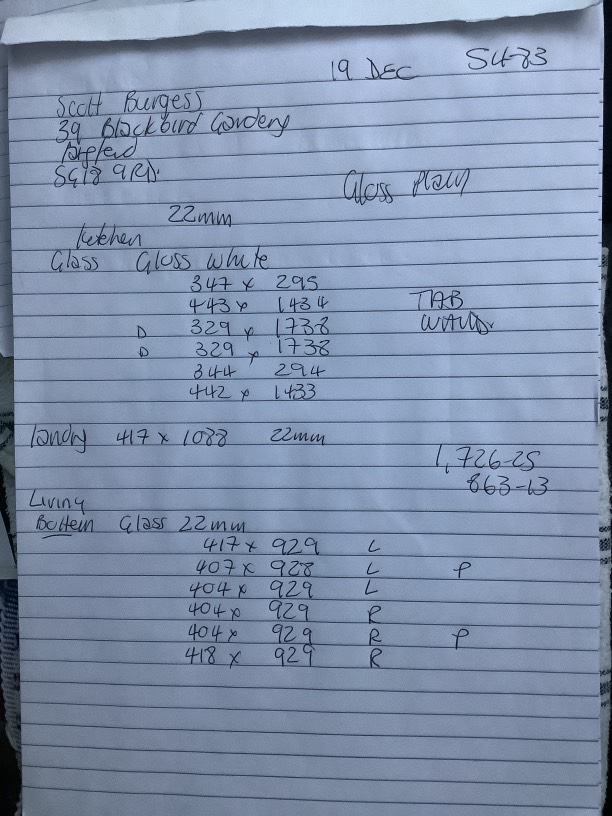 19 DEC S4-83
Scott Burgess
39 Blackbird Gardens
SG18 9RD.
Gloss Plain
22mm
Kitchen
Glass Gloss white
347 x 295
443 x 1434 TAB
D 329 x 1738 WAND
D 329 x 1738
344 294
442 x 1433
landry 417 x 1088 22mm
1,726-25
863-13
Living
Bottem Glass 22mm
417 x 929 L
407 x 928 L P
404 x 929 L
404 x 929 R
404 x 929 R P
418 x 929 R